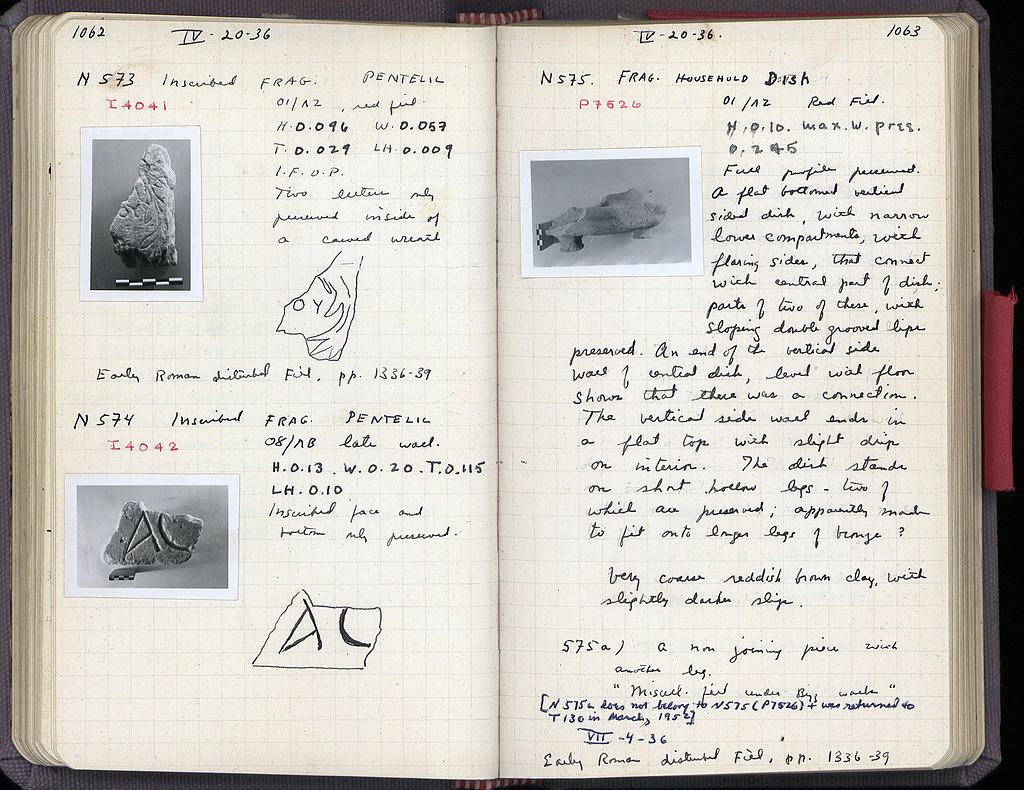 1062 IV-20-36
N 573 Inscribed FRAG. PENTELIC
I 4041
01/ΛΖ, red fill.
H.0.096 W.0.057
T.0.029 LH.0.009
I.F.O.P.
Two letters only
preserved inside of
a carved wreath
OY
Early Roman disturbed Fill, pp. 1336-39
N 574 Inscribed FRAG. PENTELIC
I 4042
08/ΛΒ late wall.
H.0.13. W.0.20. T.0.115
LH.0.10
Inscribed face and
bottom only preserved.
AC
IV-20-36. 1063
N 575. FRAG. HOUSEHOLD Dish
P7526
01/ΛΖ Red Fill.
H.0.10. max.W. pres.
0.245
Full profile preserved.
A flat bottomed vertical
sided dish, with narrow
lower compartments, with
flaring sides, that connect
with central part of dish;
parts of two of these, with
sloping double grooved lips
preserved. An end of the vertical side
wall of central dish, level with floor
shows that there was a connection.
The vertical side wall ends in
a flat top with slight drip
on interior. The dish stands
on short hollow legs - two of
which are preserved; apparently made
to fit onto longer legs of bronze?
Very coarse reddish brown clay, with
slightly darker slip.
575a) a non joining piece with
another leg.
"Miscell. fill under Byz walls"
[N 575a does not belong to N575 (P7526) + was returned to
T 130 in March, 1952]
VII-4-36
Early Roman disturbed Fill, pp. 1336-39